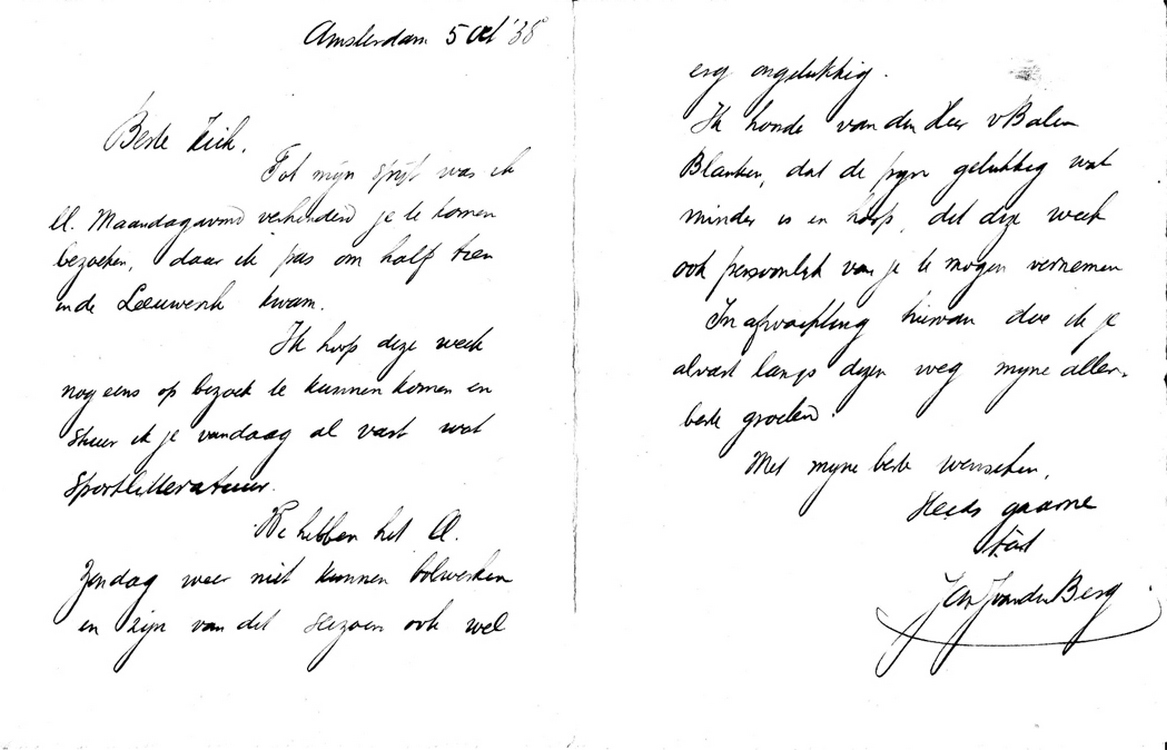 Amsterdam 5 Oct '38
Beste Kick,
Tot mijn spijt was ik
ll. Maandagavond verhinderd je te komen
bezoeken, daar ik pas om half tien
in de Leeuwerik kwam.
Ik hoop deze week
nog eens op bezoek te kunnen komen en
stuur ik je vandaag al vast wat
sportlitteratuur.
We hebben het ll.
Zondag weer niet kunnen bolwerken
en zijn van dit seizoen ook wel
erg ongelukkig.
Ik hoorde van den Heer v Balen
Blanken, dat de pijn gelukkig wat
minder is en hoop, dit deze week
ook persoonlijk van je te mogen vernemen
In afwachting hiervan doe ik je
alvast langs dezen weg mijne aller-
beste groeten.
Met mijne beste wenschen,
Steeds gaarne
Jan J van den Berg